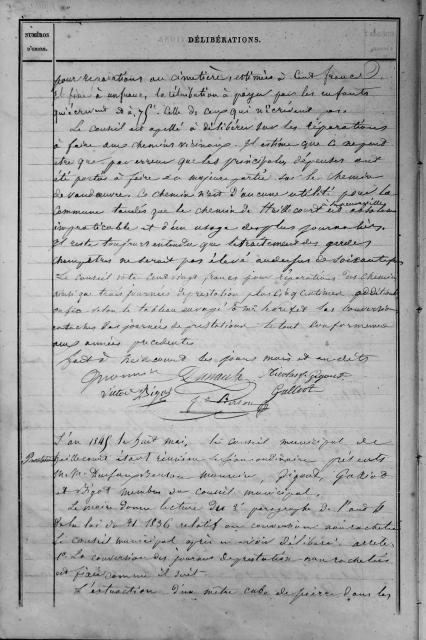 NUMÉROS
D'ORDRE.
DÉLIBÉRATIONS.
pour réparations au cimetière estimées à Cent francs
et fixe à un franc, la rétribution à payer par les enfants
qui écrivent et à 75c. Celle de ceux qui n'écrivent pas.
Le Conseil est appellé à délibérer sur les réparations
à faire aux chemins vicinaux. Il estime que ce ne peut
être que par erreur que les principales dépenses ont
été portées à faire en majeure partie sur le chemin
de Vandœuvre. Ce chemin n'est d'aucune utilité pour la
Commune tandis que le chemin de Heillecourt à est absolument
impraticable et d'un usage des plus journaliers.
Il reste toujours entendu que le traitement des gardes
champêtres ne serait pas élevé au dessus de soixante
Le Conseil vote Cent vingt francs pour réparations des chemins
ainsi que trois journées de prestation plus cinq centimes additionnels
enfin selon le tableau la conversion
en taches des journées de prestations le tout conformément
aux années précédentes
fait à heillecourt les jours mois et an dits
Nicolas Gigout
Bigot
L'an 1845 le huit mai, le Conseil municipal de
heillecourt étant réuni en session ordinaire présents
M.M. Masson Monnier, Gigout,
et Bigot membres du conseil municipal.
Le maire donne lecture du 3e paragraphe de l'art 4
de la loi du 21 1836 relatif au conversions non rachetées
Le Conseil municipal après en avoir délibéré arrête
1o La conversion des journées de prestation non rachetées
est fixée comme il suit.
L'extraction d'un mètre cube de pierre dans les